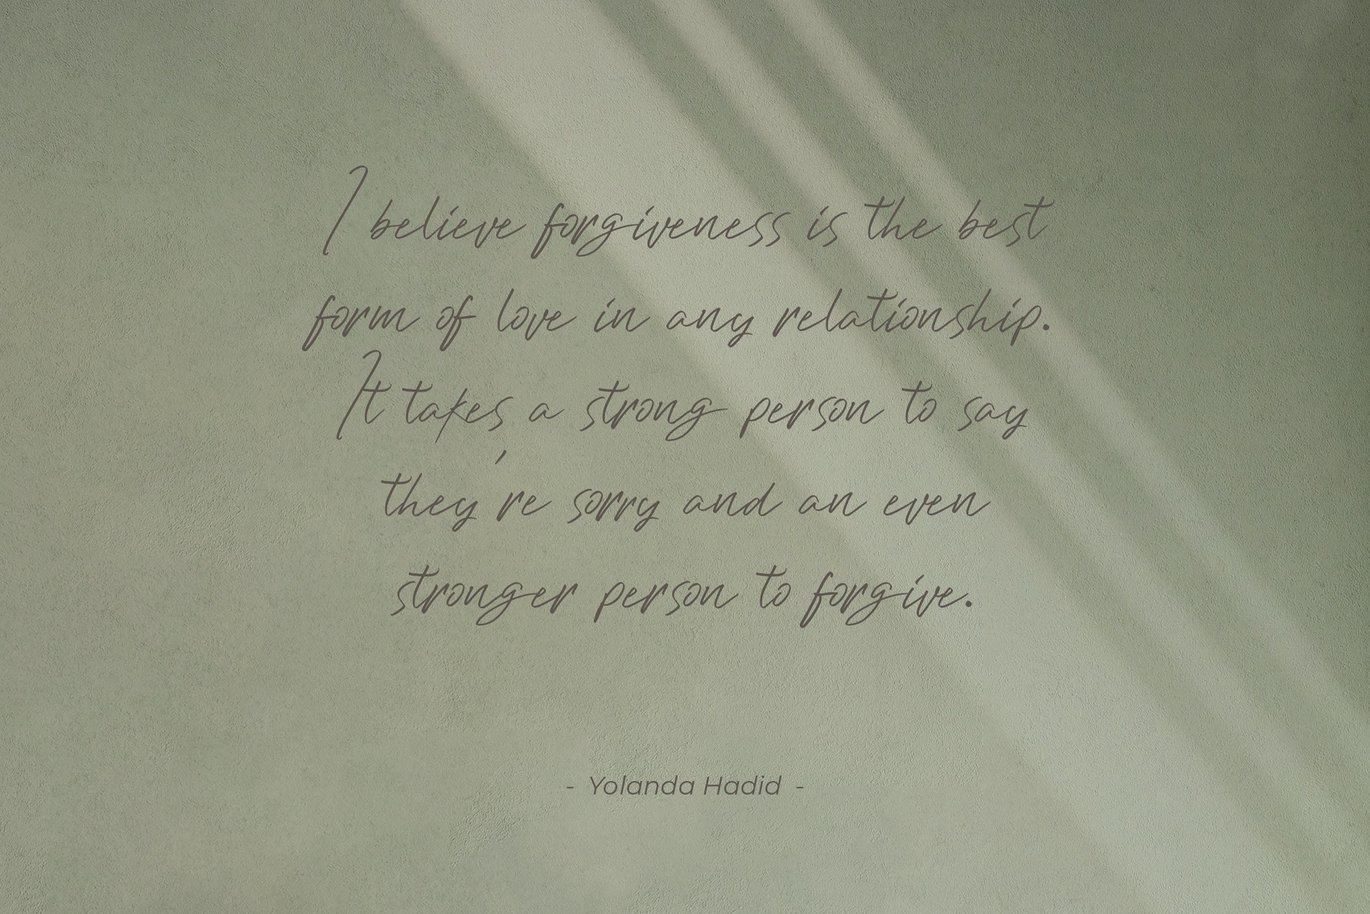 I believe forgiveness is the best
form of love in any relationship.
It takes a strong person to say
they're sorry and an even
stronger person to forgive.
- Yolanda Hadid -